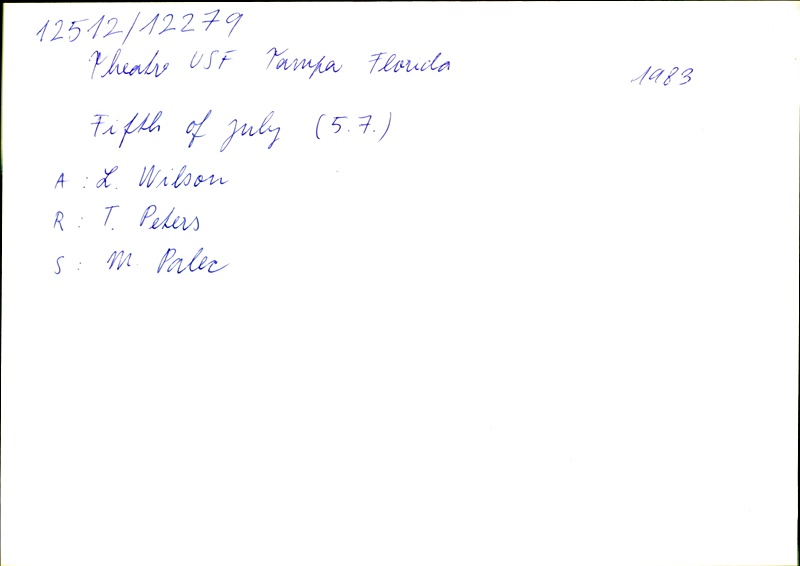 12512/12279
Theatre USF Tampa Florida
1983
Fifth of july (5.7.)
A : L. Wilson
R : T. Peters
S : M. Palec